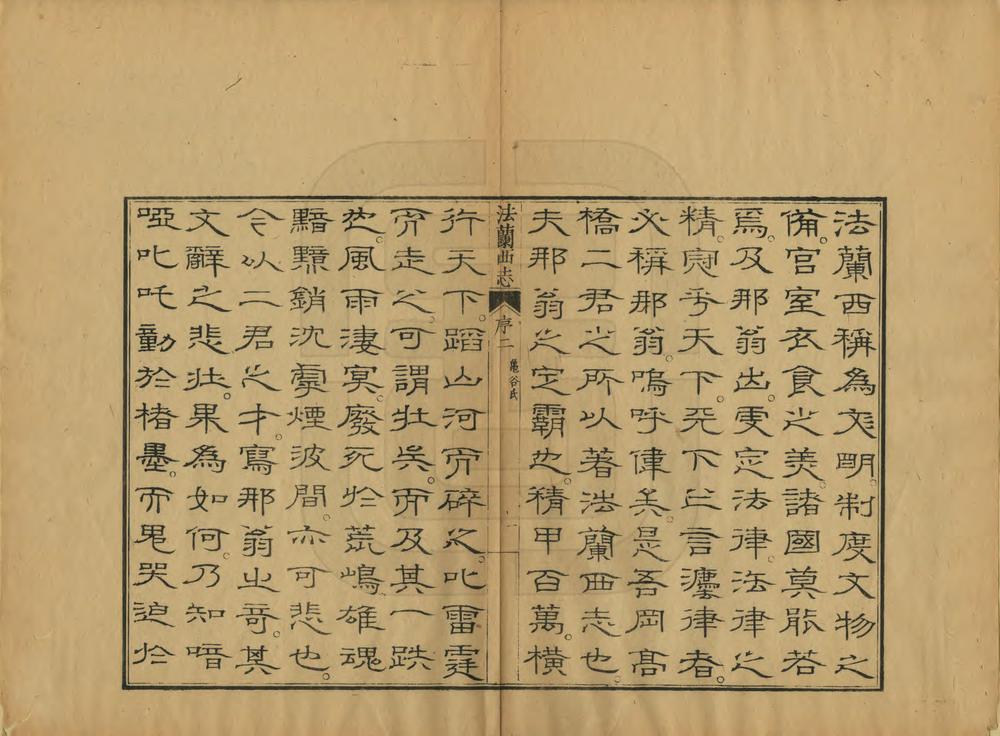 法蘭西稱為文明。制度文物之
備。宮室衣食之美。諸國莫能若
焉。及那翁出。更定法律。法律之
精。冠乎天下。天下之言灋律者。
必稱那翁。嗚呼偉矣。是吾岡髙
橋二君之所以著法蘭西志也。
夫那翁之定霸也。精甲百萬。橫
法蘭西志
序二
龜谷氏
行天下。蹈山河而碎之。叱雷霆
而走之。可謂壯矣。而及其一跌
也。風雨淒冥。廢死於荒嶋。雄魂
黯黮銷沈雰煙波間。亦可悲也。
今以二君之才。寫那翁之奇。其
文辭之悲壯。果為如何。乃知喑
啞叱吒。動於楮墨。而鬼哭迫於